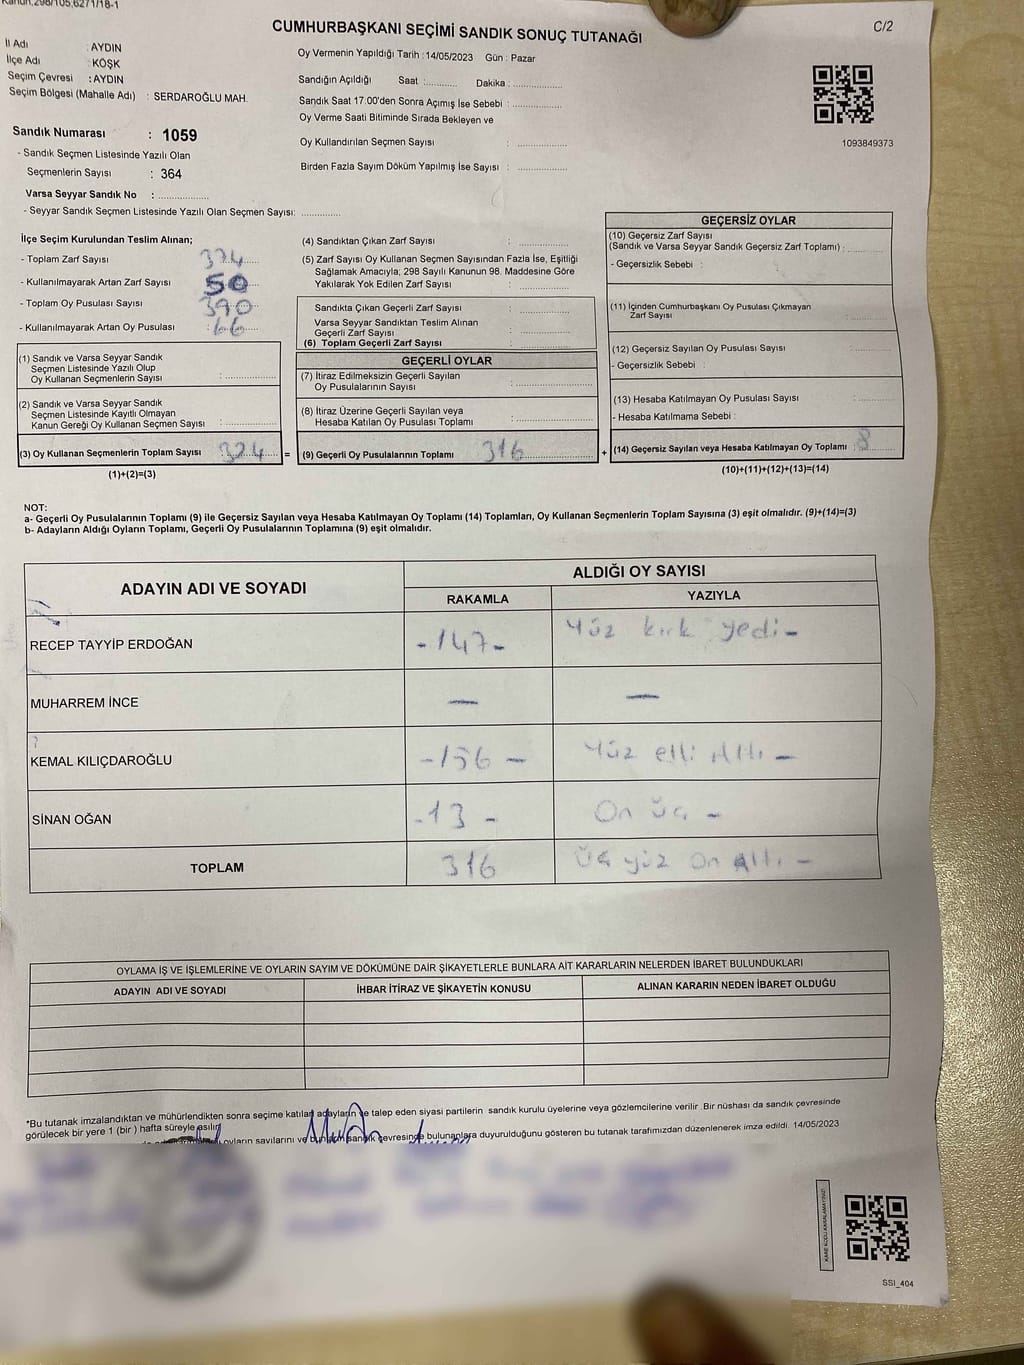 Kanun,298/105,6271/18-1
CUMHURBAŞKANI SEÇİMİ SANDIK SONUÇ TUTANAĞI
C/2
İl Adı : AYDIN
İlçe Adı : KÖŞK
Seçim Çevresi : AYDIN
Seçim Bölgesi (Mahalle Adı) : SERDAROĞLU MAH.
Sandık Numarası : 1059
- Sandık Seçmen Listesinde Yazılı Olan
Seçmenlerin Sayısı : 364
Varsa Seyyar Sandık No :
- Seyyar Sandık Seçmen Listesinde Yazılı Olan Seçmen Sayısı:
Oy Vermenin Yapıldığı Tarih : 14/05/2023 Gün : Pazar
Sandığın Açıldığı Saat : Dakika :
Sandık Saat 17:00'den Sonra Açımış İse Sebebi :
Oy Verme Saati Bitiminde Sırada Bekleyen ve
Oy Kullandırılan Seçmen Sayısı :
Birden Fazla Sayım Döküm Yapılmış İse Sayısı :
1093849373
İlçe Seçim Kurulundan Teslim Alınan;
- Toplam Zarf Sayısı : 374
- Kullanılmayarak Artan Zarf Sayısı 50
- Toplam Oy Pusulası Sayısı 390
- Kullanılmayarak Artan Oy Pusulası : 66
(1) Sandık ve Varsa Seyyar Sandık
Seçmen Listesinde Yazılı Olup
Oy Kullanan Seçmenlerin Sayısı :
(2) Sandık ve Varsa Seyyar Sandık
Seçmen Listesinde Kayıtlı Olmayan
Kanun Gereği Oy Kullanan Seçmen Sayısı :
(3) Oy Kullanan Seçmenlerin Toplam Sayısı 324 =
(1)+(2)=(3)
(4) Sandıktan Çıkan Zarf Sayısı :
(5) Zarf Sayısı Oy Kullanan Seçmen Sayısından Fazla İse, Eşitliği
Sağlamak Amacıyla; 298 Sayılı Kanunun 98. Maddesine Göre
Yakılarak Yok Edilen Zarf Sayısı :
Sandıkta Çıkan Geçerli Zarf Sayısı :
Varsa Seyyar Sandıktan Teslim Alınan
Geçerli Zarf Sayısı :
(6) Toplam Geçerli Zarf Sayısı :
GEÇERLİ OYLAR
(7) İtiraz Edilmeksizin Geçerli Sayılan
Oy Pusulalarının Sayısı :
(8) İtiraz Üzerine Geçerli Sayılan veya
Hesaba Katılan Oy Pusulası Toplamı :
(9) Geçerli Oy Pusulalarının Toplamı 316 +
GEÇERSİZ OYLAR
(10) Geçersiz Zarf Sayısı
(Sandık ve Varsa Seyyar Sandık Geçersiz Zarf Toplamı) :
- Geçersizlik Sebebi :
(11) İçinden Cumhurbaşkanı Oy Pusulası Çıkmayan
Zarf Sayısı :
(12) Geçersiz Sayılan Oy Pusulası Sayısı :
- Geçersizlik Sebebi :
(13) Hesaba Katılmayan Oy Pusulası Sayısı :
- Hesaba Katılmama Sebebi :
(14) Geçersiz Sayılan veya Hesaba Katılmayan Oy Toplamı : 8
(10)+(11)+(12)+(13)=(14)
NOT:
a- Geçerli Oy Pusulalarının Toplamı (9) ile Geçersiz Sayılan veya Hesaba Katılmayan Oy Toplamı (14) Toplamları, Oy Kullanan Seçmenlerin Toplam Sayısına (3) eşit olmalıdır. (9)+(14)=(3)
b- Adayların Aldığı Oyların Toplamı, Geçerli Oy Pusulalarının Toplamına (9) eşit olmalıdır.
ADAYIN ADI VE SOYADI ALDIĞI OY SAYISI
RAKAMLA YAZIYLA
RECEP TAYYİP ERDOĞAN -147- Yüz kırk yedi -
MUHARREM İNCE — —
KEMAL KILIÇDAROĞLU -156 - Yüz elli Altı -
SİNAN OĞAN -13 - On üç -
TOPLAM 316 Üç yüz on Altı -
OYLAMA İŞ VE İŞLEMLERİNE VE OYLARIN SAYIM VE DÖKÜMÜNE DAİR ŞİKAYETLERLE BUNLARA AİT KARARLARIN NELERDEN İBARET BULUNDUKLARI
ADAYIN ADI VE SOYADI İHBAR İTİRAZ VE ŞİKAYETİN KONUSU ALINAN KARARIN NEDEN İBARET OLDUĞU
*Bu tutanak imzalandıktan ve mühürlendikten sonra seçime katılan adayların ve talep eden siyasi partilerin sandık kurulu üyelerine veya gözlemcilerine verilir .Bir nüshası da sandık çevresinde
görülecek bir yere 1 (bir ) hafta süreyle asılır.
oyların sayılarını ve bunların sandık çevresinde bulunanlara duyurulduğunu gösteren bu tutanak tarafımızdan düzenlenerek imza edildi. 14/05/2023
SSI_404